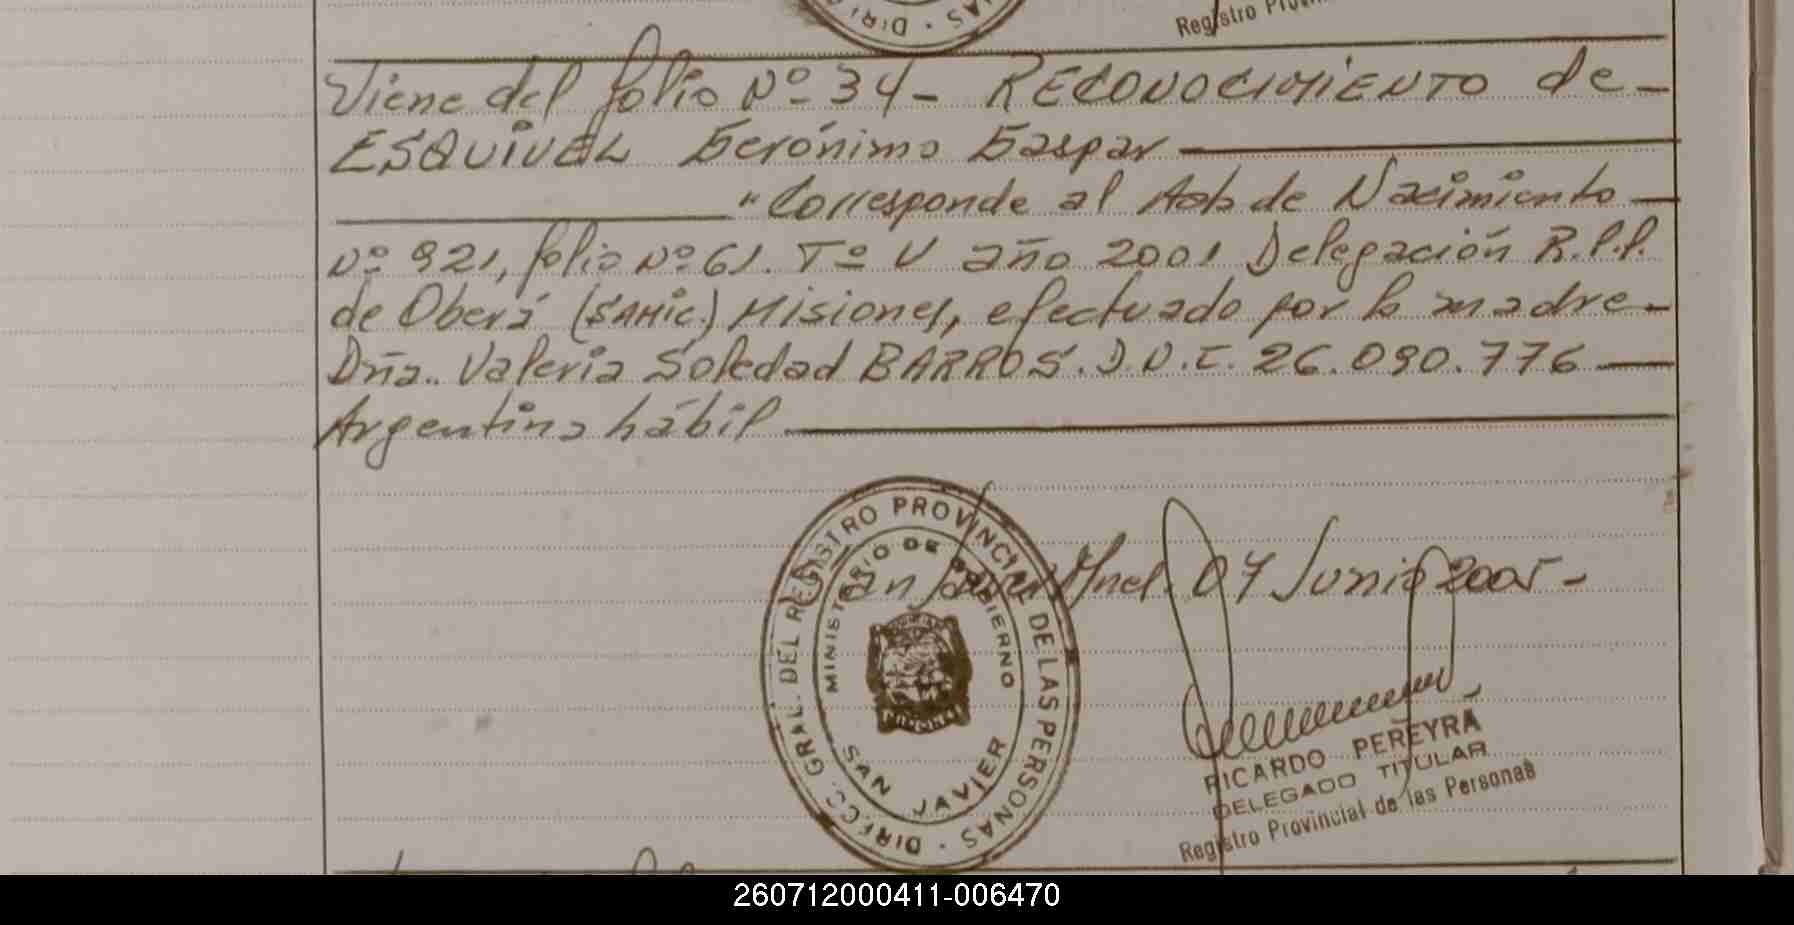 Registro
· DIR
Viene del folio Nº 34 - RECONOCIMIENTO de -
ESQUIVEL Gerónimo Gaspar
"Corresponde al Acta de Nacimiento
Nº 921, folio Nº 61. Tº V año 2001 Delegación R.P.P.
de Oberá (SAMIC.) Misiones, efectuado por la madre -
Dña. Valeria Soledad BARROS. D.N.I. 26.090.776
Argentina hábil
San Javier Mnes. 07 Junio 2005 -
DIRECC. GRAL. DEL REGISTRO PROVINCIAL DE LAS PERSONAS ·
MINISTERIO DE GOBIERNO
SAN JAVIER
RICARDO PEREYRA
DELEGADO TITULAR
Registro Provincial de las Personas
260712000411-006470